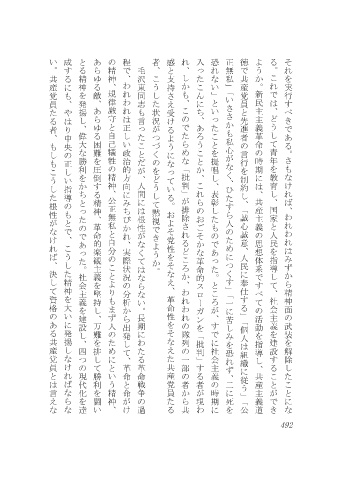 それを実行すべきである。さもなければ、われわれはみずから精神面の武装を解除したことにな
る。これでは、どうして青年を教育し、国家と人民を指導して、社会主義を建設することができ
ようか。新民主主義革命の時期には、共産主義の思想体系ですべての活動を指導し、共産主義道
徳で共産党員と先進者の言行を制約し、「誠心誠意、人民に奉仕する」「個人は組織に従う」「公
正無私」「いささかも私心がなく、ひたすら人のためにつくす」「一に苦しみを恐れず、二に死を
恐れない」といったことを提唱し、表彰したものであった。ところが、すでに社会主義の時期に
入ったこんにち、あろうことか、これらのおごそかな革命的スローガンを「批判」する者が現わ
れ、しかも、このでたらめな「批判」が排除されるどころか、われわれの隊列の一部の者から共
感と支持さえ受けるようになっている。およそ党性をそなえ、革命性をそなえた共産党員たる
者、こうした状況がつづくのをどうして黙視できようか。
毛沢東同志も言ったことだが、人間には根性がなくてはならない。長期にわたる革命戦争の過
程で、われわれは正しい政治的方向にみちびかれ、実際状況の分析から出発して、革命と命がけ
の精神、規律厳守と自己犠牲の精神、公正無私と自分のことよりもまず人のためにという精神、
あらゆる敵、あらゆる困難を圧倒する精神、革命的楽観主義を堅持し、万難を排して勝利を闘い
とる精神を発揚し、偉大な勝利をかちとったのであった。社会主義を建設し、四つの現代化を達
成するにも、やはり中央の正しい指導のもとで、こうした精神を大いに発揚しなければならな
い。共産党員たる者、もしもこうした根性がなければ、決して資格のある共産党員とは言えな
492